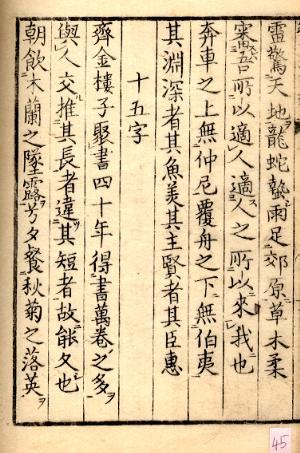 雷驚天地龍蛇蟄雨足郊原草木柔
審吾所以適人適人之所以來我也
奔車之上無仲尼覆舟之下無伯夷
其淵深者其魚美其主賢者其臣惠
十五字
齊金樓子聚書四十年得書萬卷之多
與人交推其長者違其短者故能久也
朝飲木蘭之墜露兮夕餐秋菊之落英
45